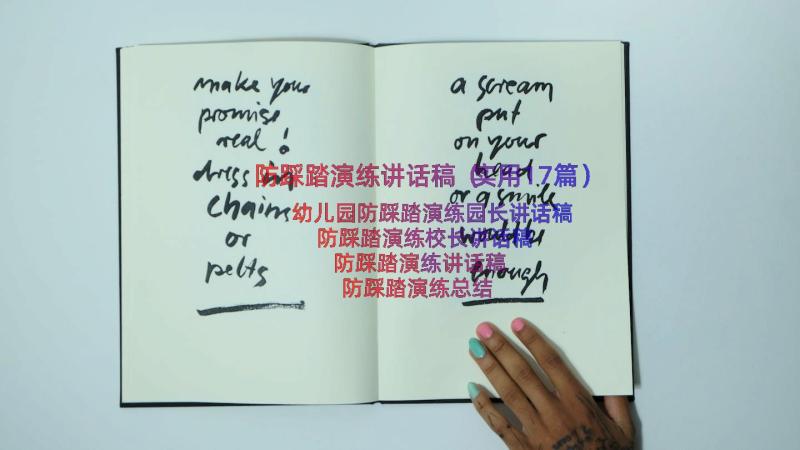 make your
promise
real!
dress in
chains
or
pelts
a scream
put
on your
head
or a smile
would be
enough
防踩踏演练讲话稿（实用17篇）
幼儿园防踩踏演练园长讲话稿
防踩踏演练校长讲话稿
防踩踏演练讲话稿
防踩踏演练总结